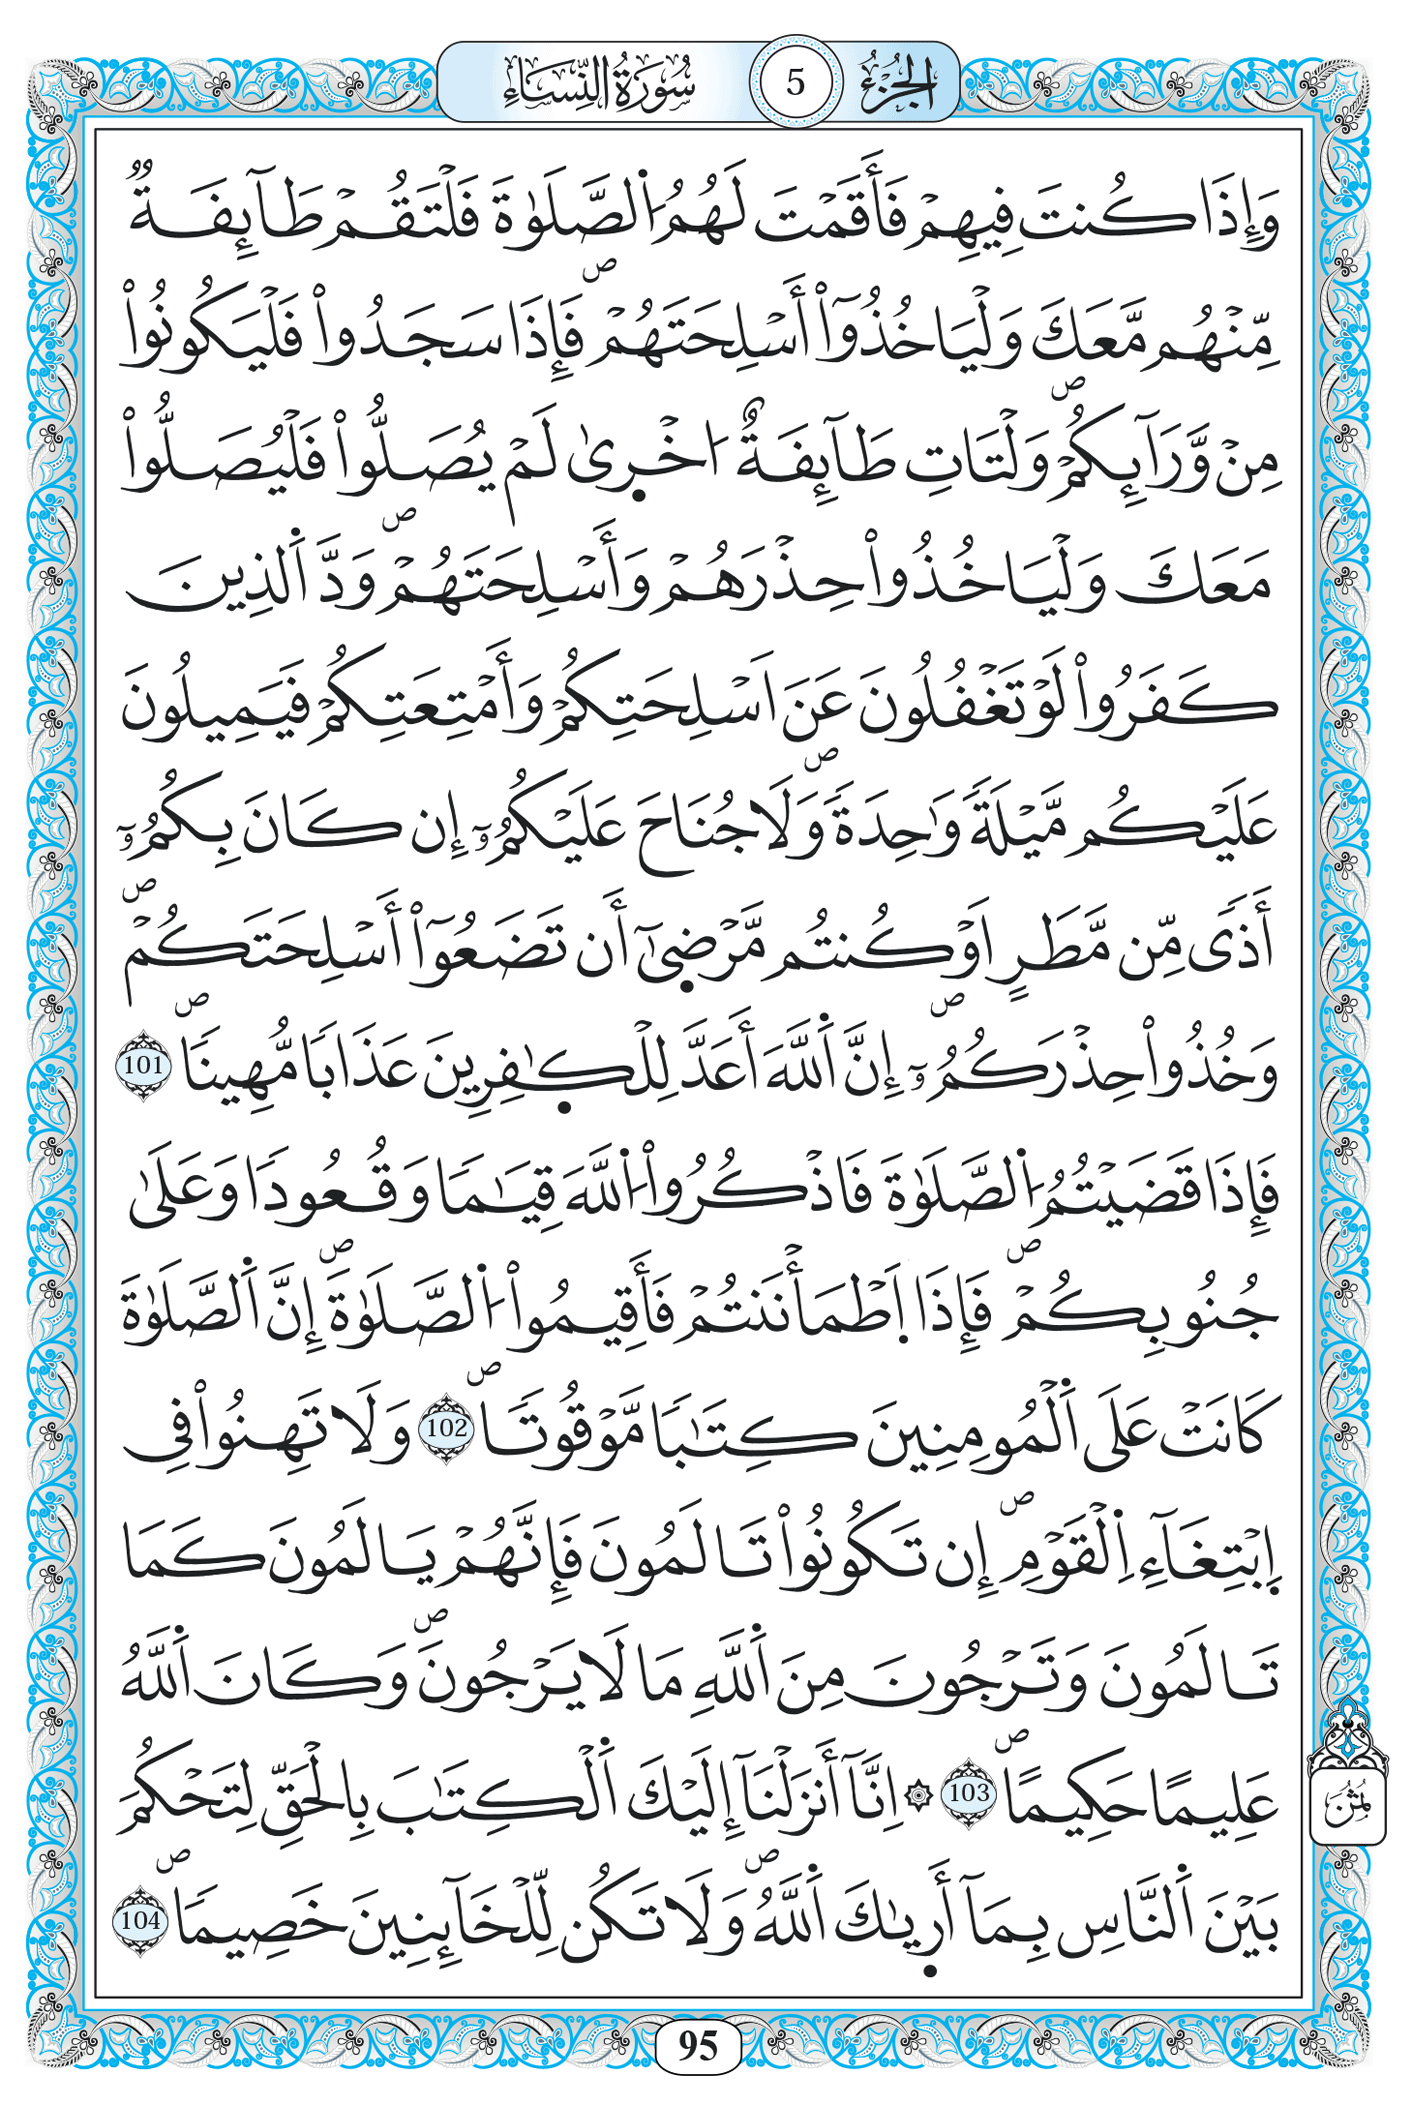 الجزء 5 سورة النساء
وَإِذَا كُنتَ فِيهِمْ فَأَقَمْتَ لَهُمُ اُ۬لصَّلَوٰةَ فَلْتَقُمْ طَآئِفَةٞ
مِّنْهُم مَّعَكَ وَلْيَاخُذُوٓاْ أَسْلِحَتَهُمْۖ فَإِذَا سَجَدُواْ فَلْيَكُونُواْ
مِنْ وَّرَآئِكُمْۖ وَلْتَاتِ طَآئِفَةٌ اخْر۪يٰ لَمْ يُصَلُّواْ فَلْيُصَلُّواْ
مَعَكَ وَلْيَاخُذُواْ حِذْرَهُمْ وَأَسْلِحَتَهُمْۖ وَدَّ اَ۬لذِينَ
كَفَرُواْ لَوْ تَغْفُلُونَ عَنَ اَسْلِحَتِكُمْ وَأَمْتِعَتِكُمْ فَيَمِيلُونَ
عَلَيْكُم مَّيْلَةٗ وَٰحِدَةٗۖ وَلَا جُنَاحَ عَلَيْكُمُۥٓ إِن كَانَ بِكُمُۥٓ
أَذيٗ مِّن مَّطَرٍ اَوْ كُنتُم مَّرْض۪يٰٓ أَن تَضَعُوٓاْ أَسْلِحَتَكُمْۖ
وَخُذُواْ حِذْرَكُمُۥٓۖ إِنَّ اَ۬للَّهَ أَعَدَّ لِلْكٰ۪فِرِينَ عَذَاباٗ مُّهِيناٗۖ 101
فَإِذَا قَضَيْتُمُ اُ۬لصَّلَوٰةَ فَاذْكُرُواْ اُ۬للَّهَ قِيَٰماٗ وَقُعُوداٗ وَعَلَىٰ
جُنُوبِكُمْۖ فَإِذَا اَ۪طْمَأْنَنتُمْ فَأَقِيمُواْ اُ۬لصَّلَوٰةَۖ إِنَّ اَ۬لصَّلَوٰةَ
كَانَتْ عَلَى اَ۬لْمُومِنِينَ كِتَٰباٗ مَّوْقُوتاٗۖ 102 وَلَا تَهِنُواْ فِي
اِ۪بْتِغَآءِ اِ۬لْقَوْمِۖ إِن تَكُونُواْ تَالَمُونَ فَإِنَّهُمْ يَالَمُونَ كَمَا
تَالَمُونَ وَتَرْجُونَ مِنَ اَ۬للَّهِ مَا لَا يَرْجُونَۖ وَكَانَ اَ۬للَّهُ
عَلِيماً حَكِيماًۖ 103 ۞ اِنَّآ أَنزَلْنَآ إِلَيْكَ اَ۬لْكِتَٰبَ بِالْحَقِّ لِتَحْكُمَ
ثُمُن
بَيْنَ اَ۬لنَّاسِ بِمَآ أَر۪يٰكَ اَ۬للَّهُۖ وَلَا تَكُن لِّلْخَآئِنِينَ خَصِيماٗۖ 104
95